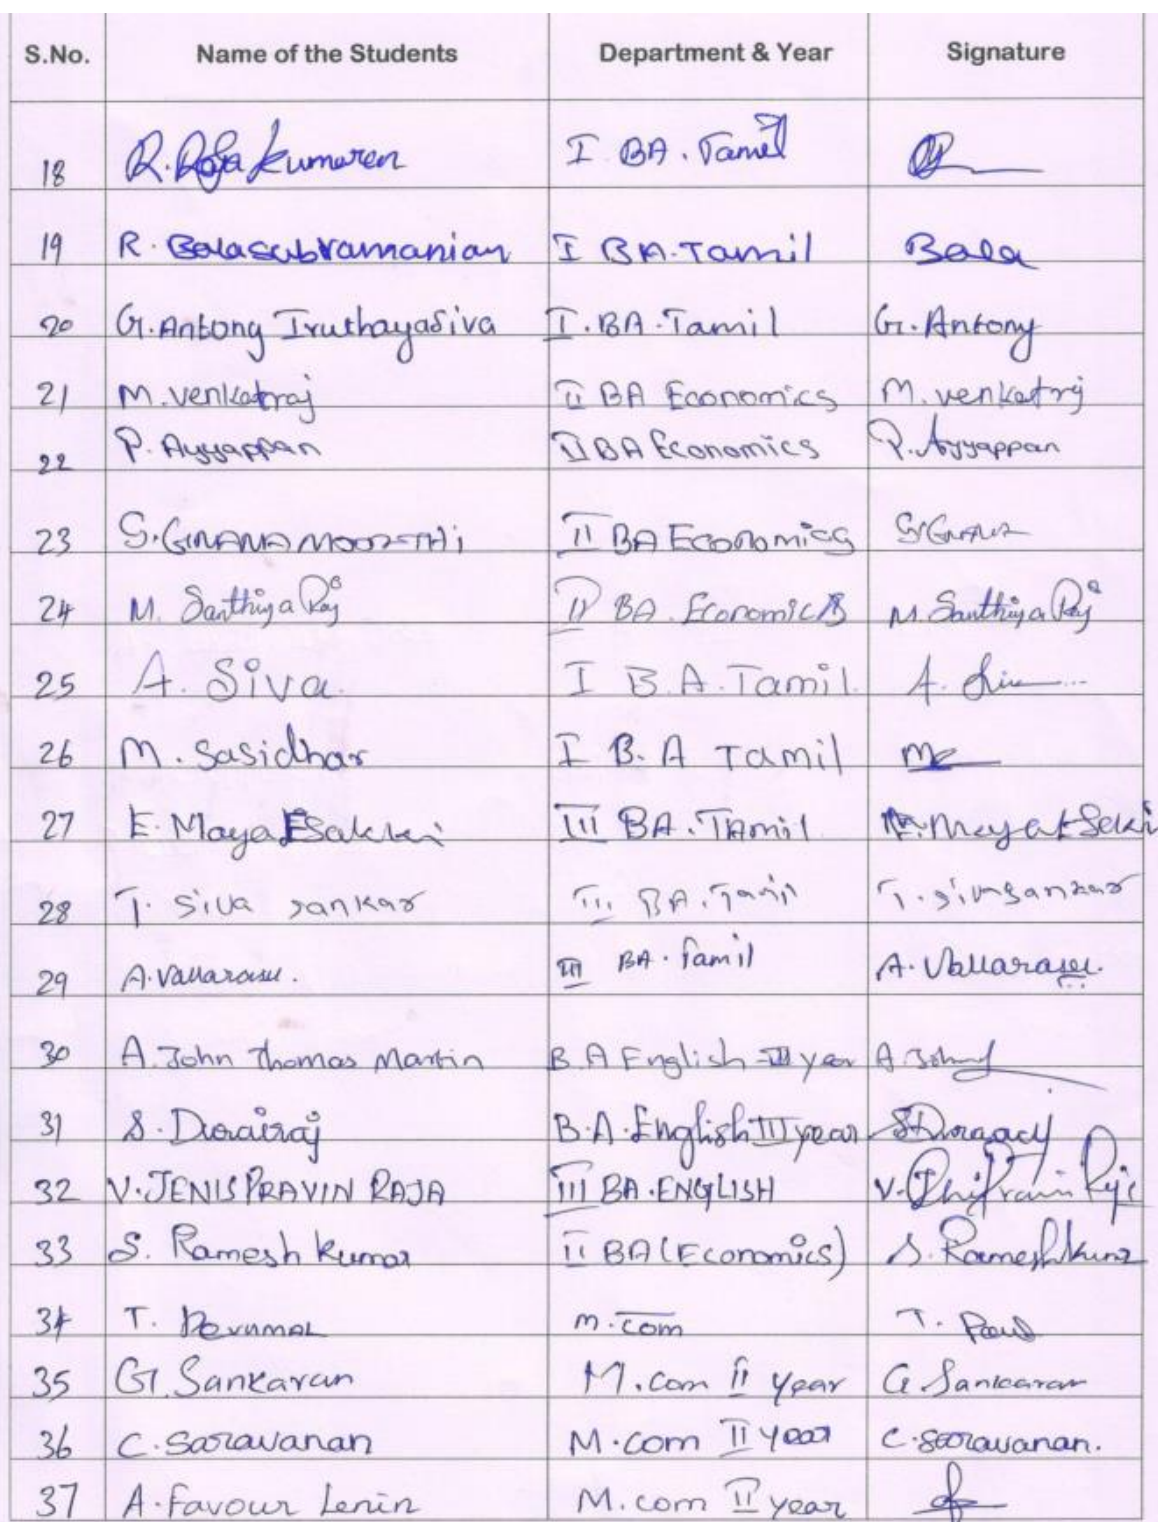 S.No. Name of the Students Department & Year Signature
18 R. Raja kumaren I BA. Tamil
19 R. Balasubramanian I BA. Tamil Bala
20 G. Antony Iruthayasiva I. BA. Tamil G. Antony
21 M. venkatraj II BA Economics M. venkatraj
22 P. Ayyappan II BA Economics P. Ayyappan
23 S. GNANAMOORTHi II BA Economics
24 M. Santhiya Raj II BA. Economics M. Santhiya Raj
25 A. Siva. I B.A. Tamil. A.
26 M. Sasidhar I B.A Tamil
27 E. Maya Esakki III BA. TAmil E. Maya Esakki
28 T. Siva sankar III BA. Tamil T. sivasankar
29 A. Vallarasu. III BA. Tamil A. Vallarasu.
30 A. John Thomas Martin B.A English III year A. John
31 S. Durairaj B.A. English III year
32 V. JENIS PRAVIN RAJA III BA. ENGLISH V.
33 S. Ramesh kumar II BA (Economics) S. Ramesh
34 T. Perumal M. com T.
35 G. Sankaran M. com II year G Sankaran
36 C. Saravanan M. com II year C. Saravanan.
37 A. Favour Lenin M. com II year